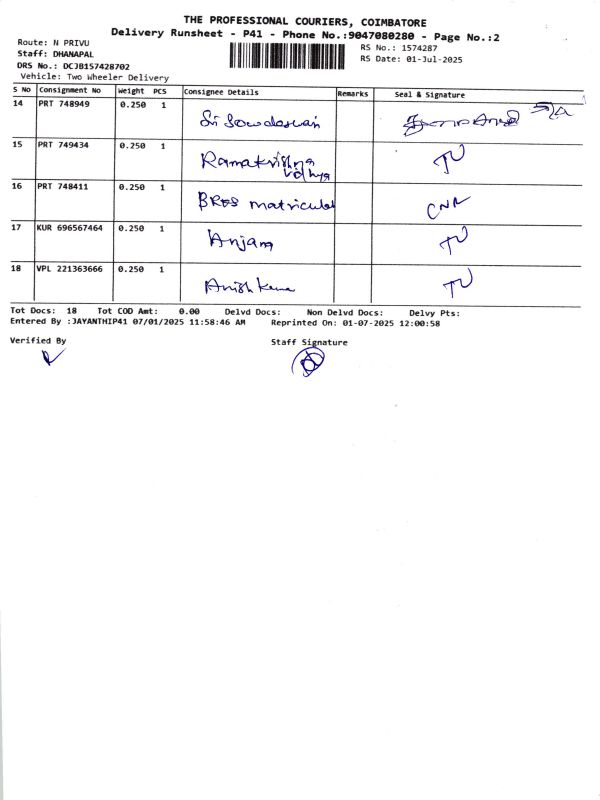 THE PROFESSIONAL COURIERS, COIMBATORE
Delivery Runsheet - P41 - Phone No.:9047080280 - Page No.:2
Route: N PRIVU
RS No.: 1574287
Staff: DHANAPAL
RS Date: 01-Jul-2025
DRS No.: DCJB157428702
Vehicle: Two Wheeler Delivery
S No Consignment No Weight PCS Consignee Details Remarks Seal & Signature
14 PRT 748949 0.250 1 Sri
15 PRT 749434 0.250 1 Ramakrishna TU
Vidhya
16 PRT 748411 0.250 1 matriculat CNR
17 KUR 696567464 0.250 1 Anjana TU
18 VPL 221363666 0.250 1 Anish TU
Tot Docs: 18 Tot COD Amt: 0.00 Delvd Docs: Non Delvd Docs: Delvy Pts:
Entered By :JAYANTHIP41 07/01/2025 11:58:46 AM Reprinted On: 01-07-2025 12:00:58
Verified By Staff Signature